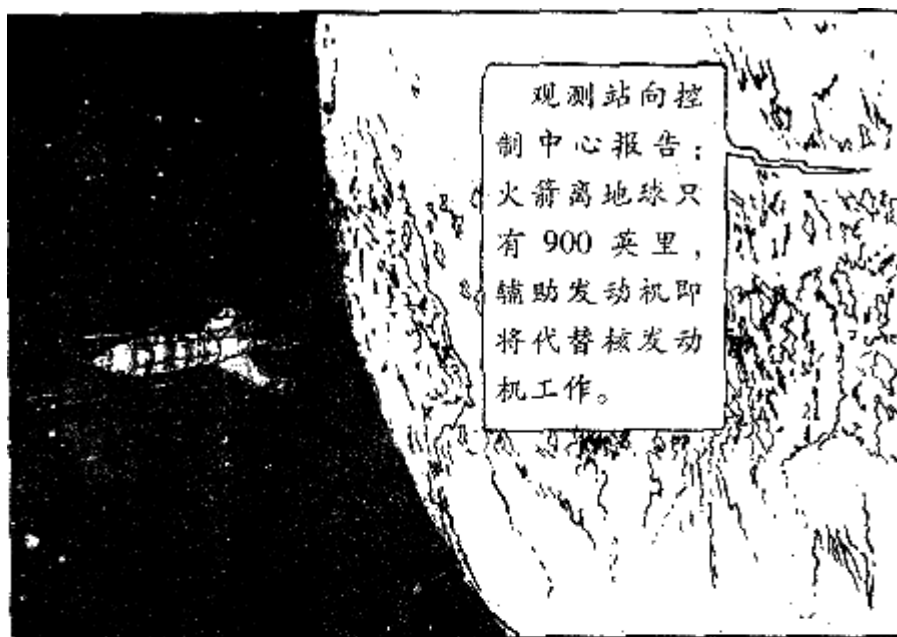 观测站向控
制中心报告：
火箭离地球只
有 900 英里，
辅助发动机即
将代替核发动
机工作。